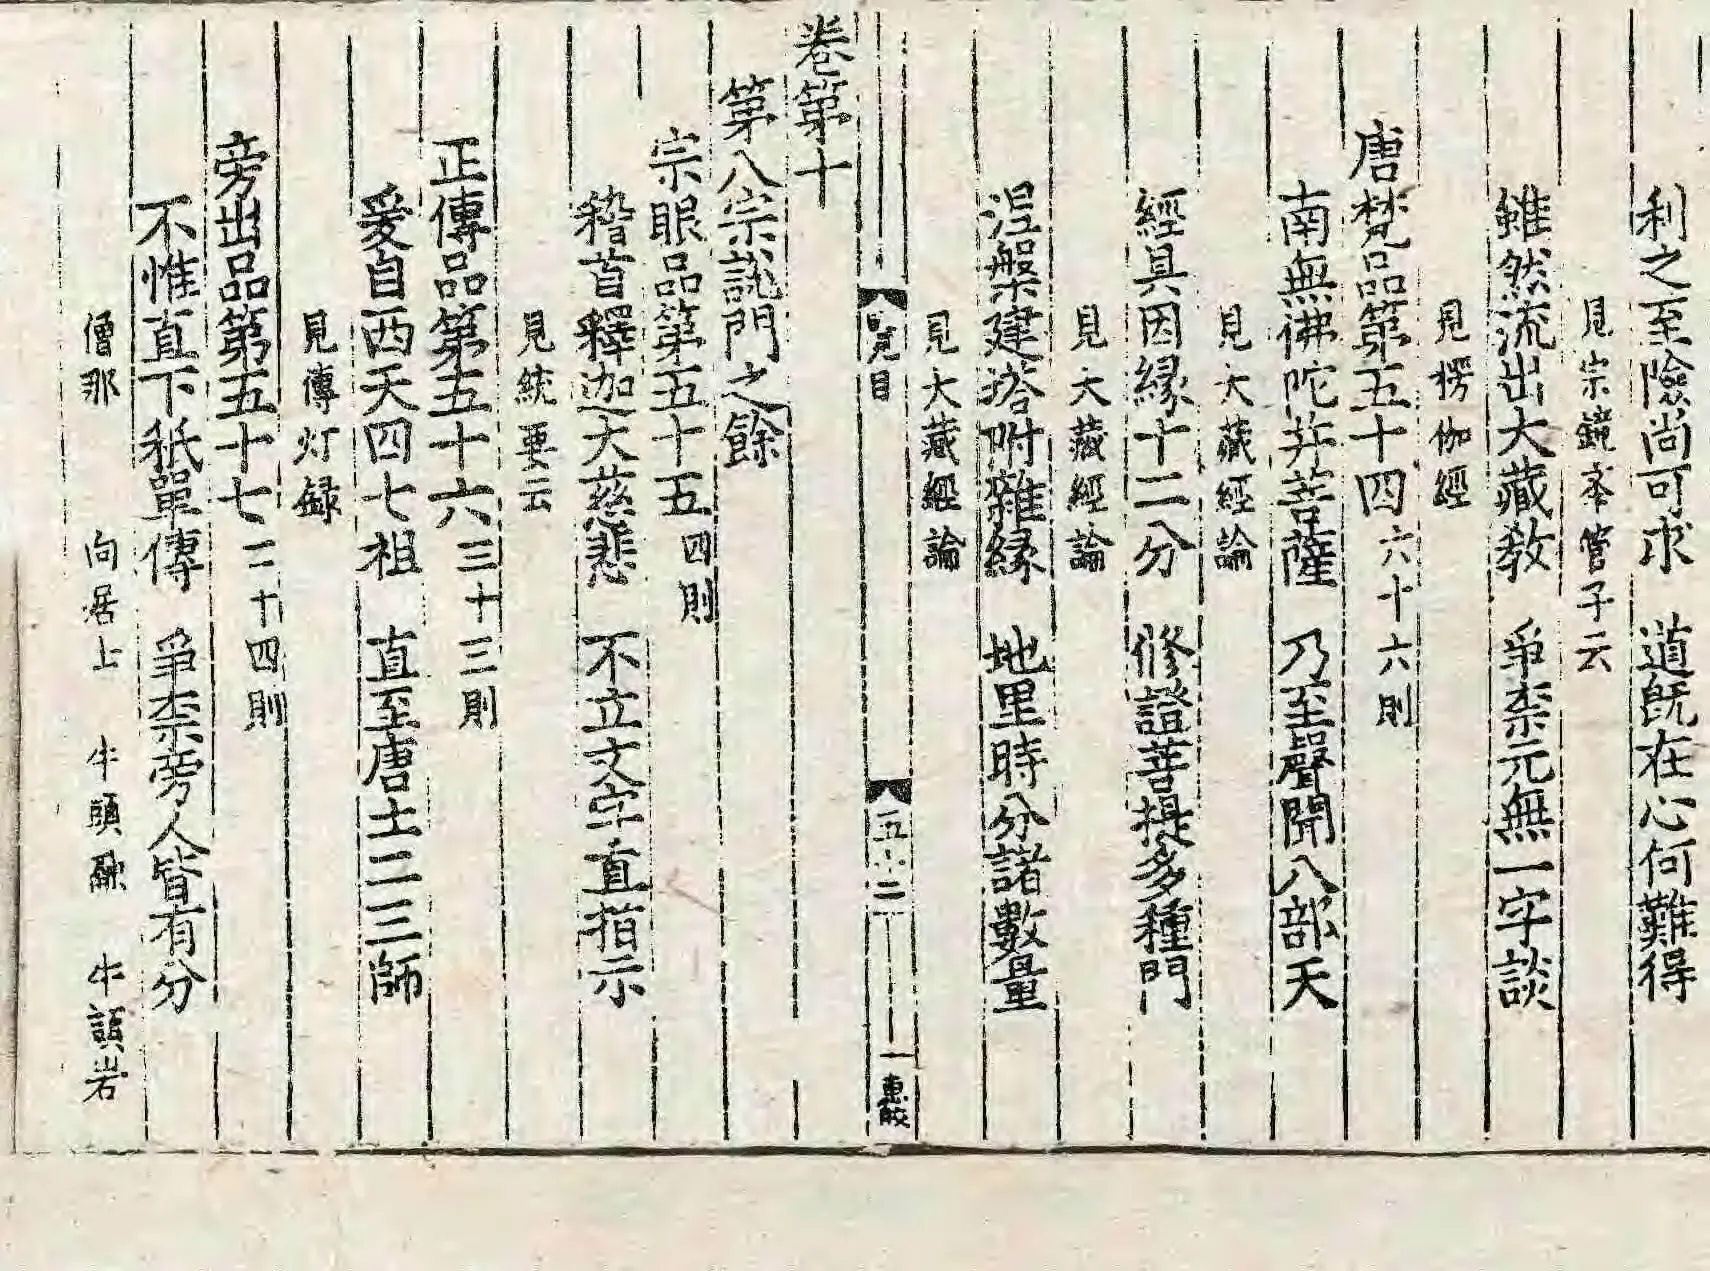 利之至險尚可求　道既在心何難得
見宗鏡夲管子云
雖然流出大藏教　爭柰元無一字談
見楞伽經
唐梵品第五十四六十六則
南無佛陀并菩薩　乃至聲聞八部天
見大藏經論
經具因縁十二分　修證菩提多種門
見大藏經論
涅槃建塔附雜縁　地里時分諸數量
見大藏經論
目
五十二
卷第十
第八宗說門之餘
宗眼品第五十五四則
稽首釋迦大慈悲　不立文字直指示
見統要云
正傳品第五十六三十三則
爰自西天四七祖　直至唐土二三師
見傳灯録
旁出品第五十七二十四則
不惟直下秖單傳　爭柰旁人皆有分
僧那　向居士　牛頭融　牛頭岩